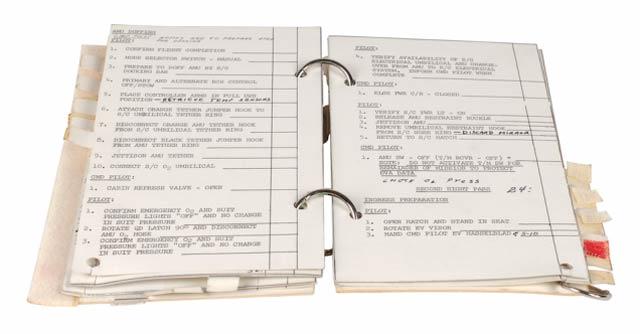 AMU DOFFING
PILOT:
1. CONFIRM FLIGHT COMPLETION
2. MODE SELECTOR SWITCH - MANUAL
3. PREPARE TO DOFF AMU BY S/C
DOCKING BAR
4. PRIMARY AND ALTERNATE RCS CONTROL
OFF/DOWN
5. PLACE CONTROLLER ARMS IN FULL DWN
POSITION - RETRIEVE TEMP SENSORS
6. ATTACH ORANGE TETHER JUMPER HOOK
TO S/C UMBILICAL TETHER RING
7. DISCONNECT ORANGE AMU TETHER HOOK
FROM S/C UMBILICAL TETHER RING
8. DISCONNECT BLACK TETHER JUMPER HOOK
FROM AMU TETHER
9. JETTISON AMU TETHER
10. CONNECT S/C O2 UMBILICAL
CMD PILOT:
1. CABIN REPRESS VALVE - OPEN
PILOT:
1. CONFIRM EMERGENCY O2 AND SUIT
PRESSURE LIGHTS "OFF" AND NO CHANGE
IN SUIT PRESSURE
2. ROTATE QD LATCH 90° AND DISCONNECT
AMU O2 HOSE
3. CONFIRM EMERGENCY O2 AND SUIT
PRESSURE LIGHTS "OFF" AND NO CHANGE
IN SUIT PRESSURE
PILOT:
4. VERIFY AVAILABILITY OF S/C
ELECTRICAL UMBILICAL AND CHANGE-
OVER FROM AMU TO S/C ELECTRICAL
SYSTEM, INFORM CMD PILOT WHEN
COMPLETE
CMD PILOT:
1. ELSS PWR C/B - CLOSED
PILOT:
1. VERIFY S/C PWR LT - ON
2. RELEASE AMU RESTRAINT BUCKLE
3. JETTISON AMU
4. REMOVE UMBILICAL RESTRAINT HOOK
FROM S/C HDER RING - DISCARD MIRROR
5. RETURN TO S/C HATCH
CMD PILOT:
1. AMU SW - OFF (T/M RCVR - OFF)
NOTE: DO NOT ACTIVATE T/M SW FOR
REMAINDER OF MISSION TO PROTECT
EVA DATA
CHECK O2 PRESS
SECOND NIGHT PASS 24:
INGRESS PREPARATION
PILOT:
1. OPEN HATCH AND STAND IN SEAT
2. ROTATE EV VISOR
3. HAND CMD PILOT EV HASSELBLAD